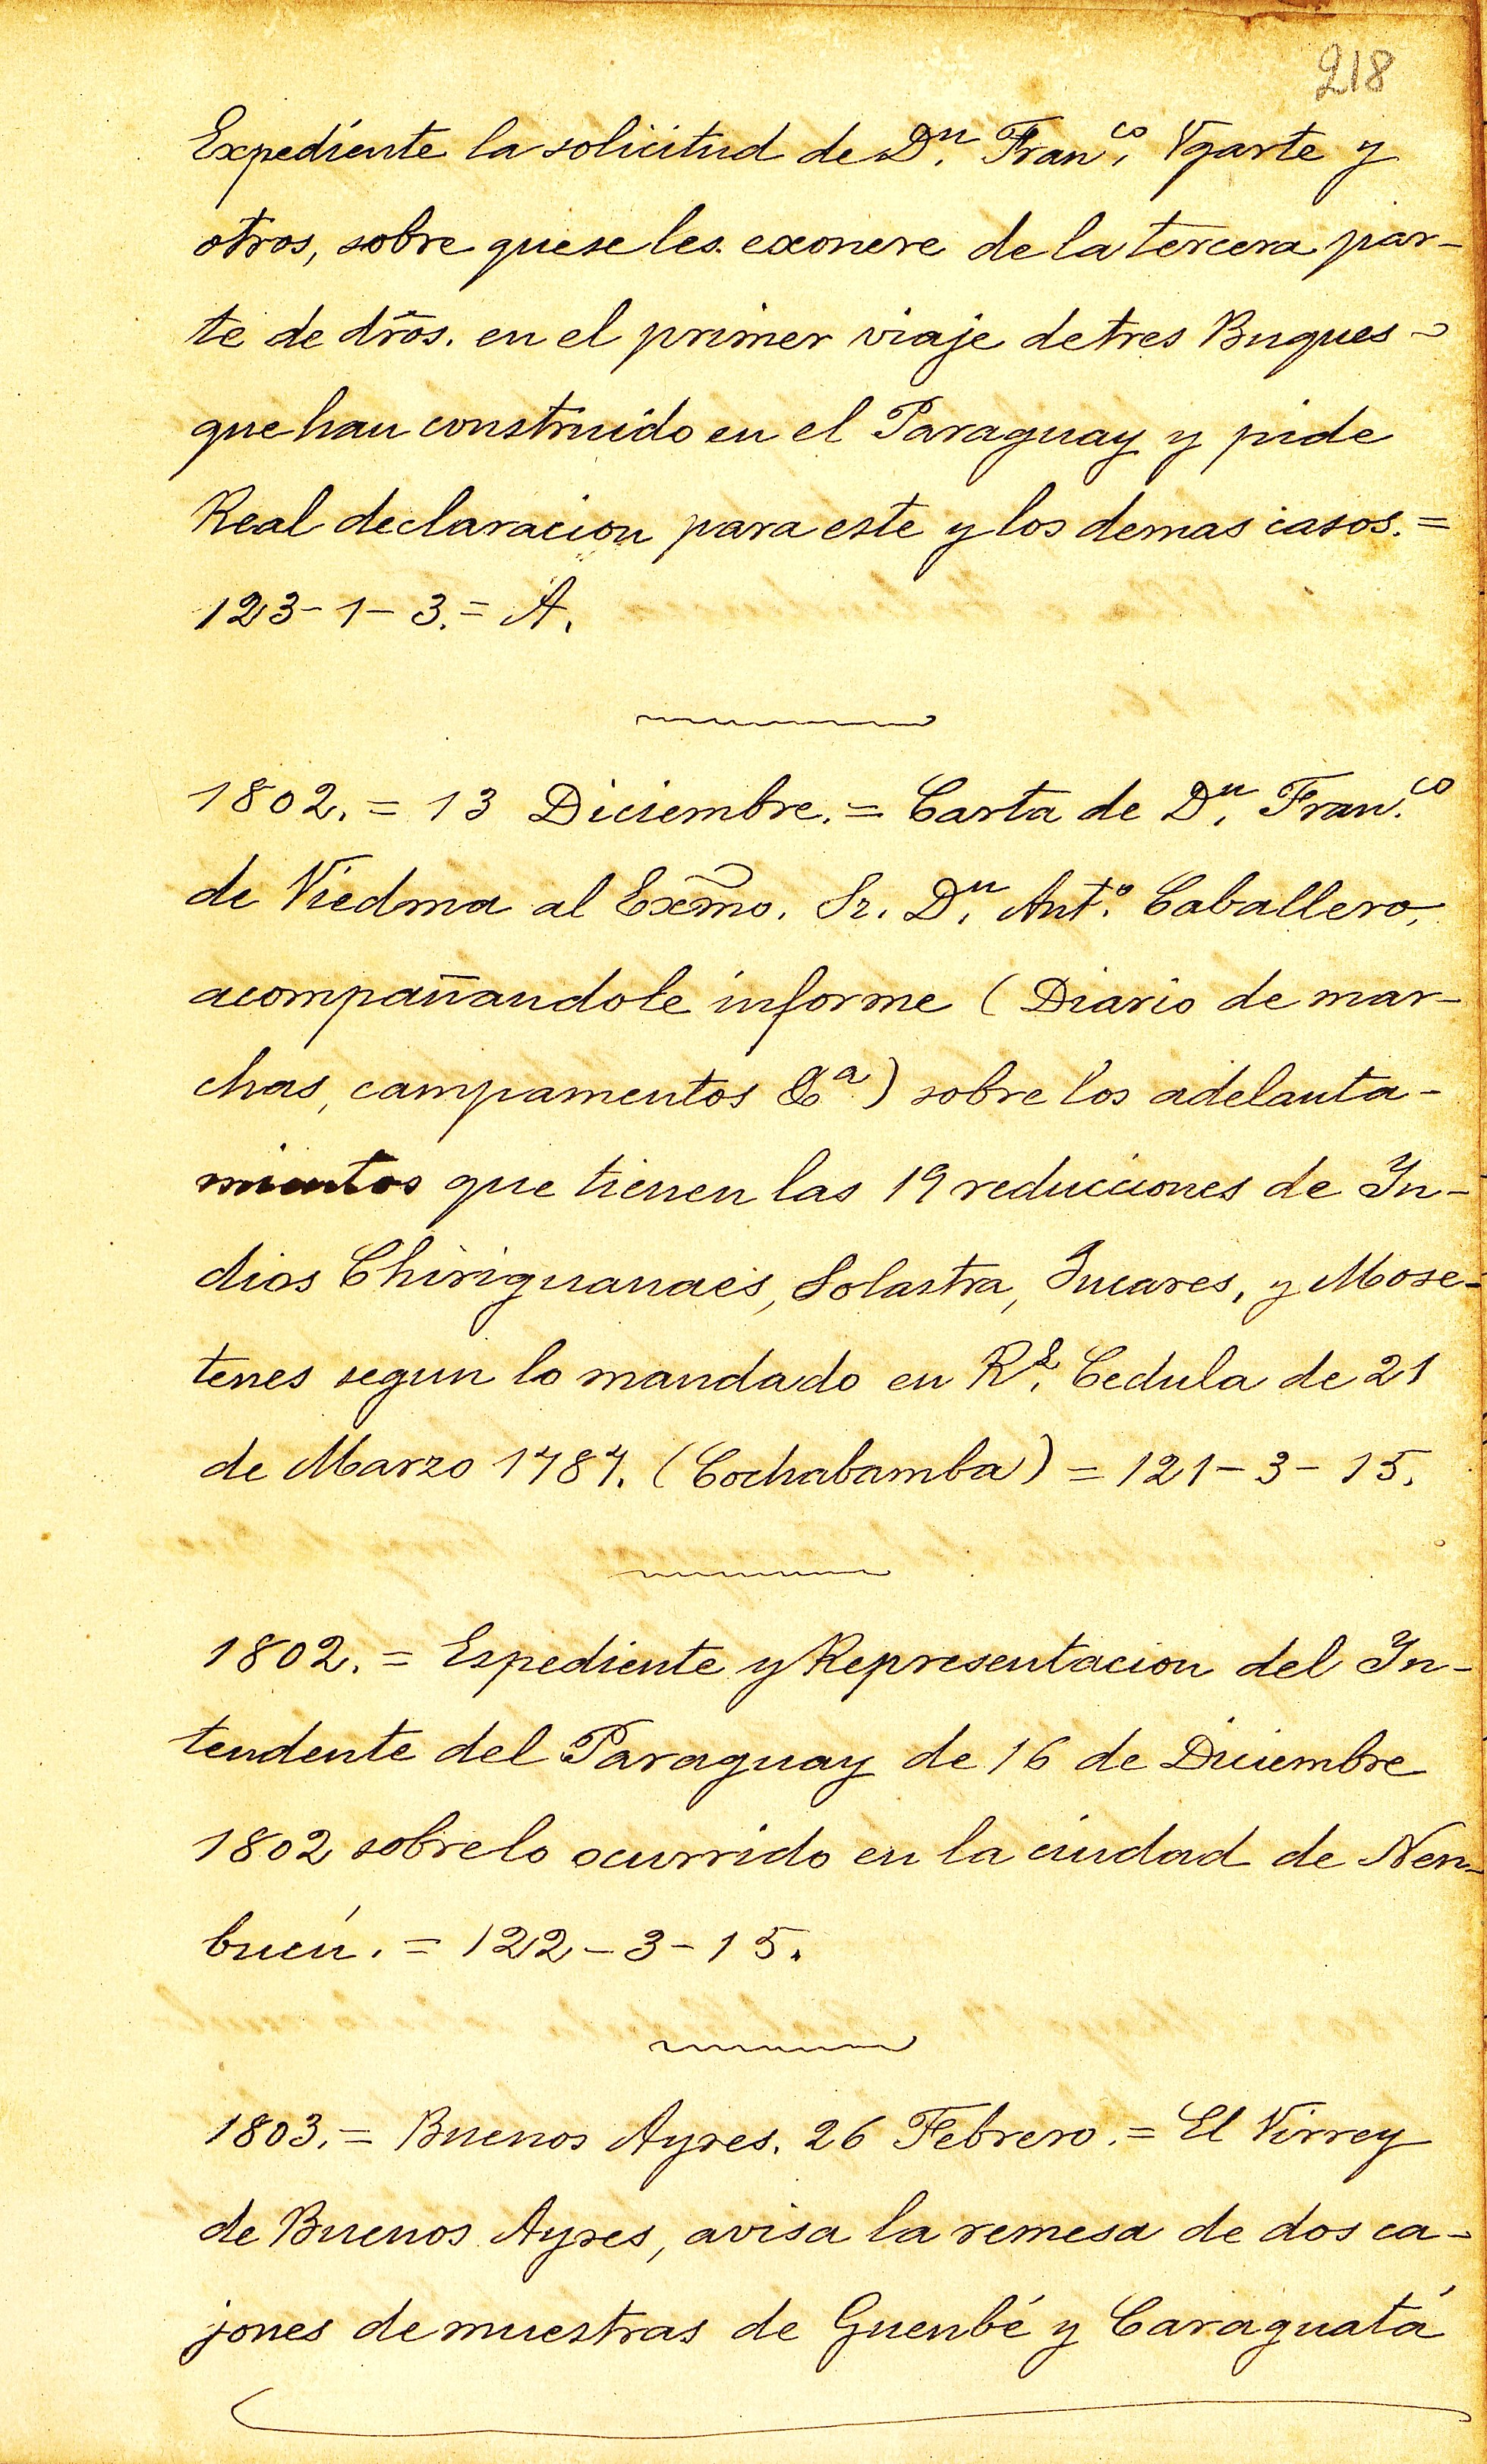 218
Expediente la solicitud de Dⁿ. Franᶜᵒ. Vgarte y
otros, sobre que se les exonere de la tercera par-
te de dr̃os. en el primer viaje de tres Buques -
que han construido en el Paraguay y pide
Real declaracion para este y los demas casos. =
123 - 1 - 3. = A.
1802. = 13 Diciembre. = Carta de Dⁿ. Franᶜᵒ.
de Viedma al Exm̃o. Sr. Dⁿ. Antº. Caballero,
acompañandole informe (Diario de mar-
chas, campamentos &ª) sobre los adelanta-
mientos que tienen las 19 reducciones de In-
dios Chiriguanaes, Solastra, Iucares, y Mose-
tenes segun lo mandado en Rˡ. Cedula de 21
de Marzo 1787. (Cochabamba) = 121 - 3 - 15.
1802. = Espediente y Representacion del In-
tendente del Paraguay de 16 de Diciembre
1802 sobre lo ocurrido en la ciudad de Nen-
bucú. = 122 - 3 - 15.
1803. = Buenos Ayres. 26 Febrero. = El Virrey
de Buenos Ayres, avisa la remesa de dos ca-
jones de muestras de Guenbé y Caraguatá